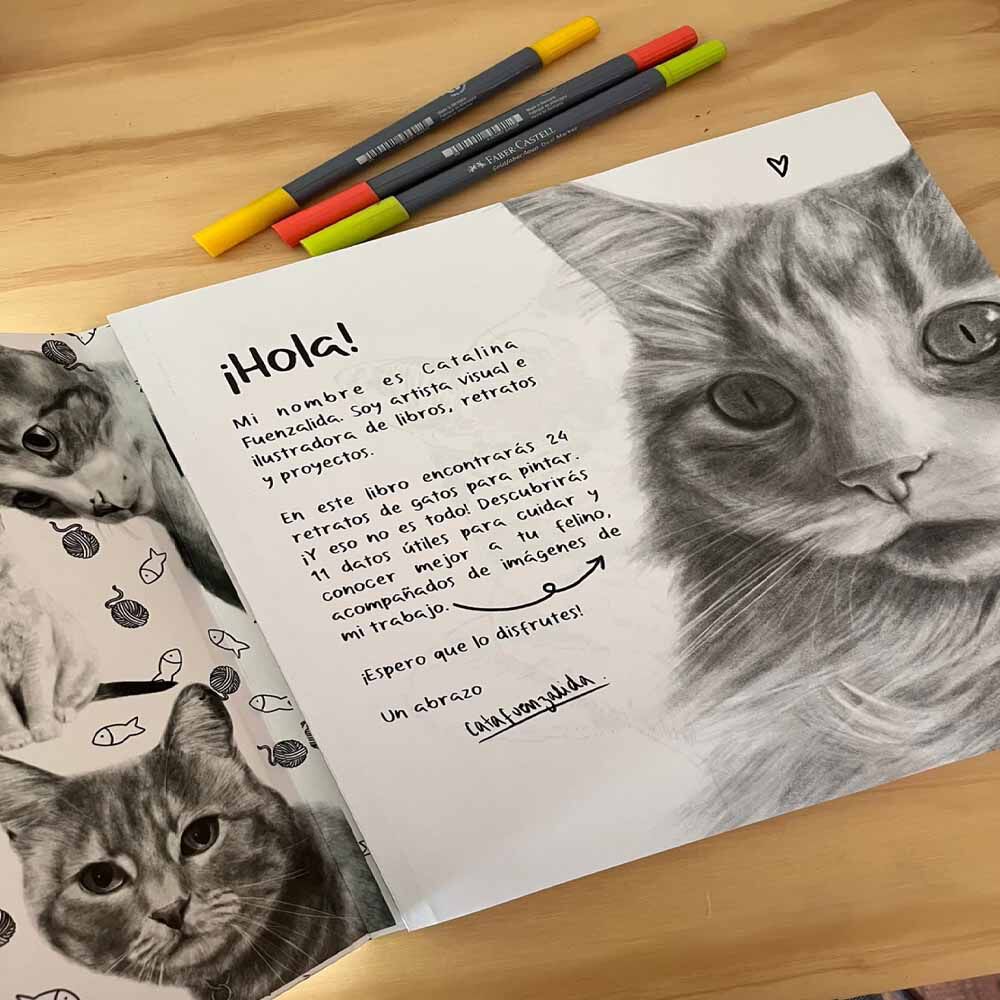 FABER-CASTELL
Goldfaber Aqua Dual Marker
¡Hola!
Mi nombre es Catalina
Fuenzalida. Soy artista visual e
ilustradora de libros, retratos
y proyectos.
En este libro encontrarás 24
retratos de gatos para pintar.
¡Y eso no es todo! Descubrirás
11 datos útiles para cuidar y
conocer mejor a tu felino,
acompañados de imágenes de
mi trabajo.
¡Espero que lo disfrutes!
Un abrazo
catafuenzalida.